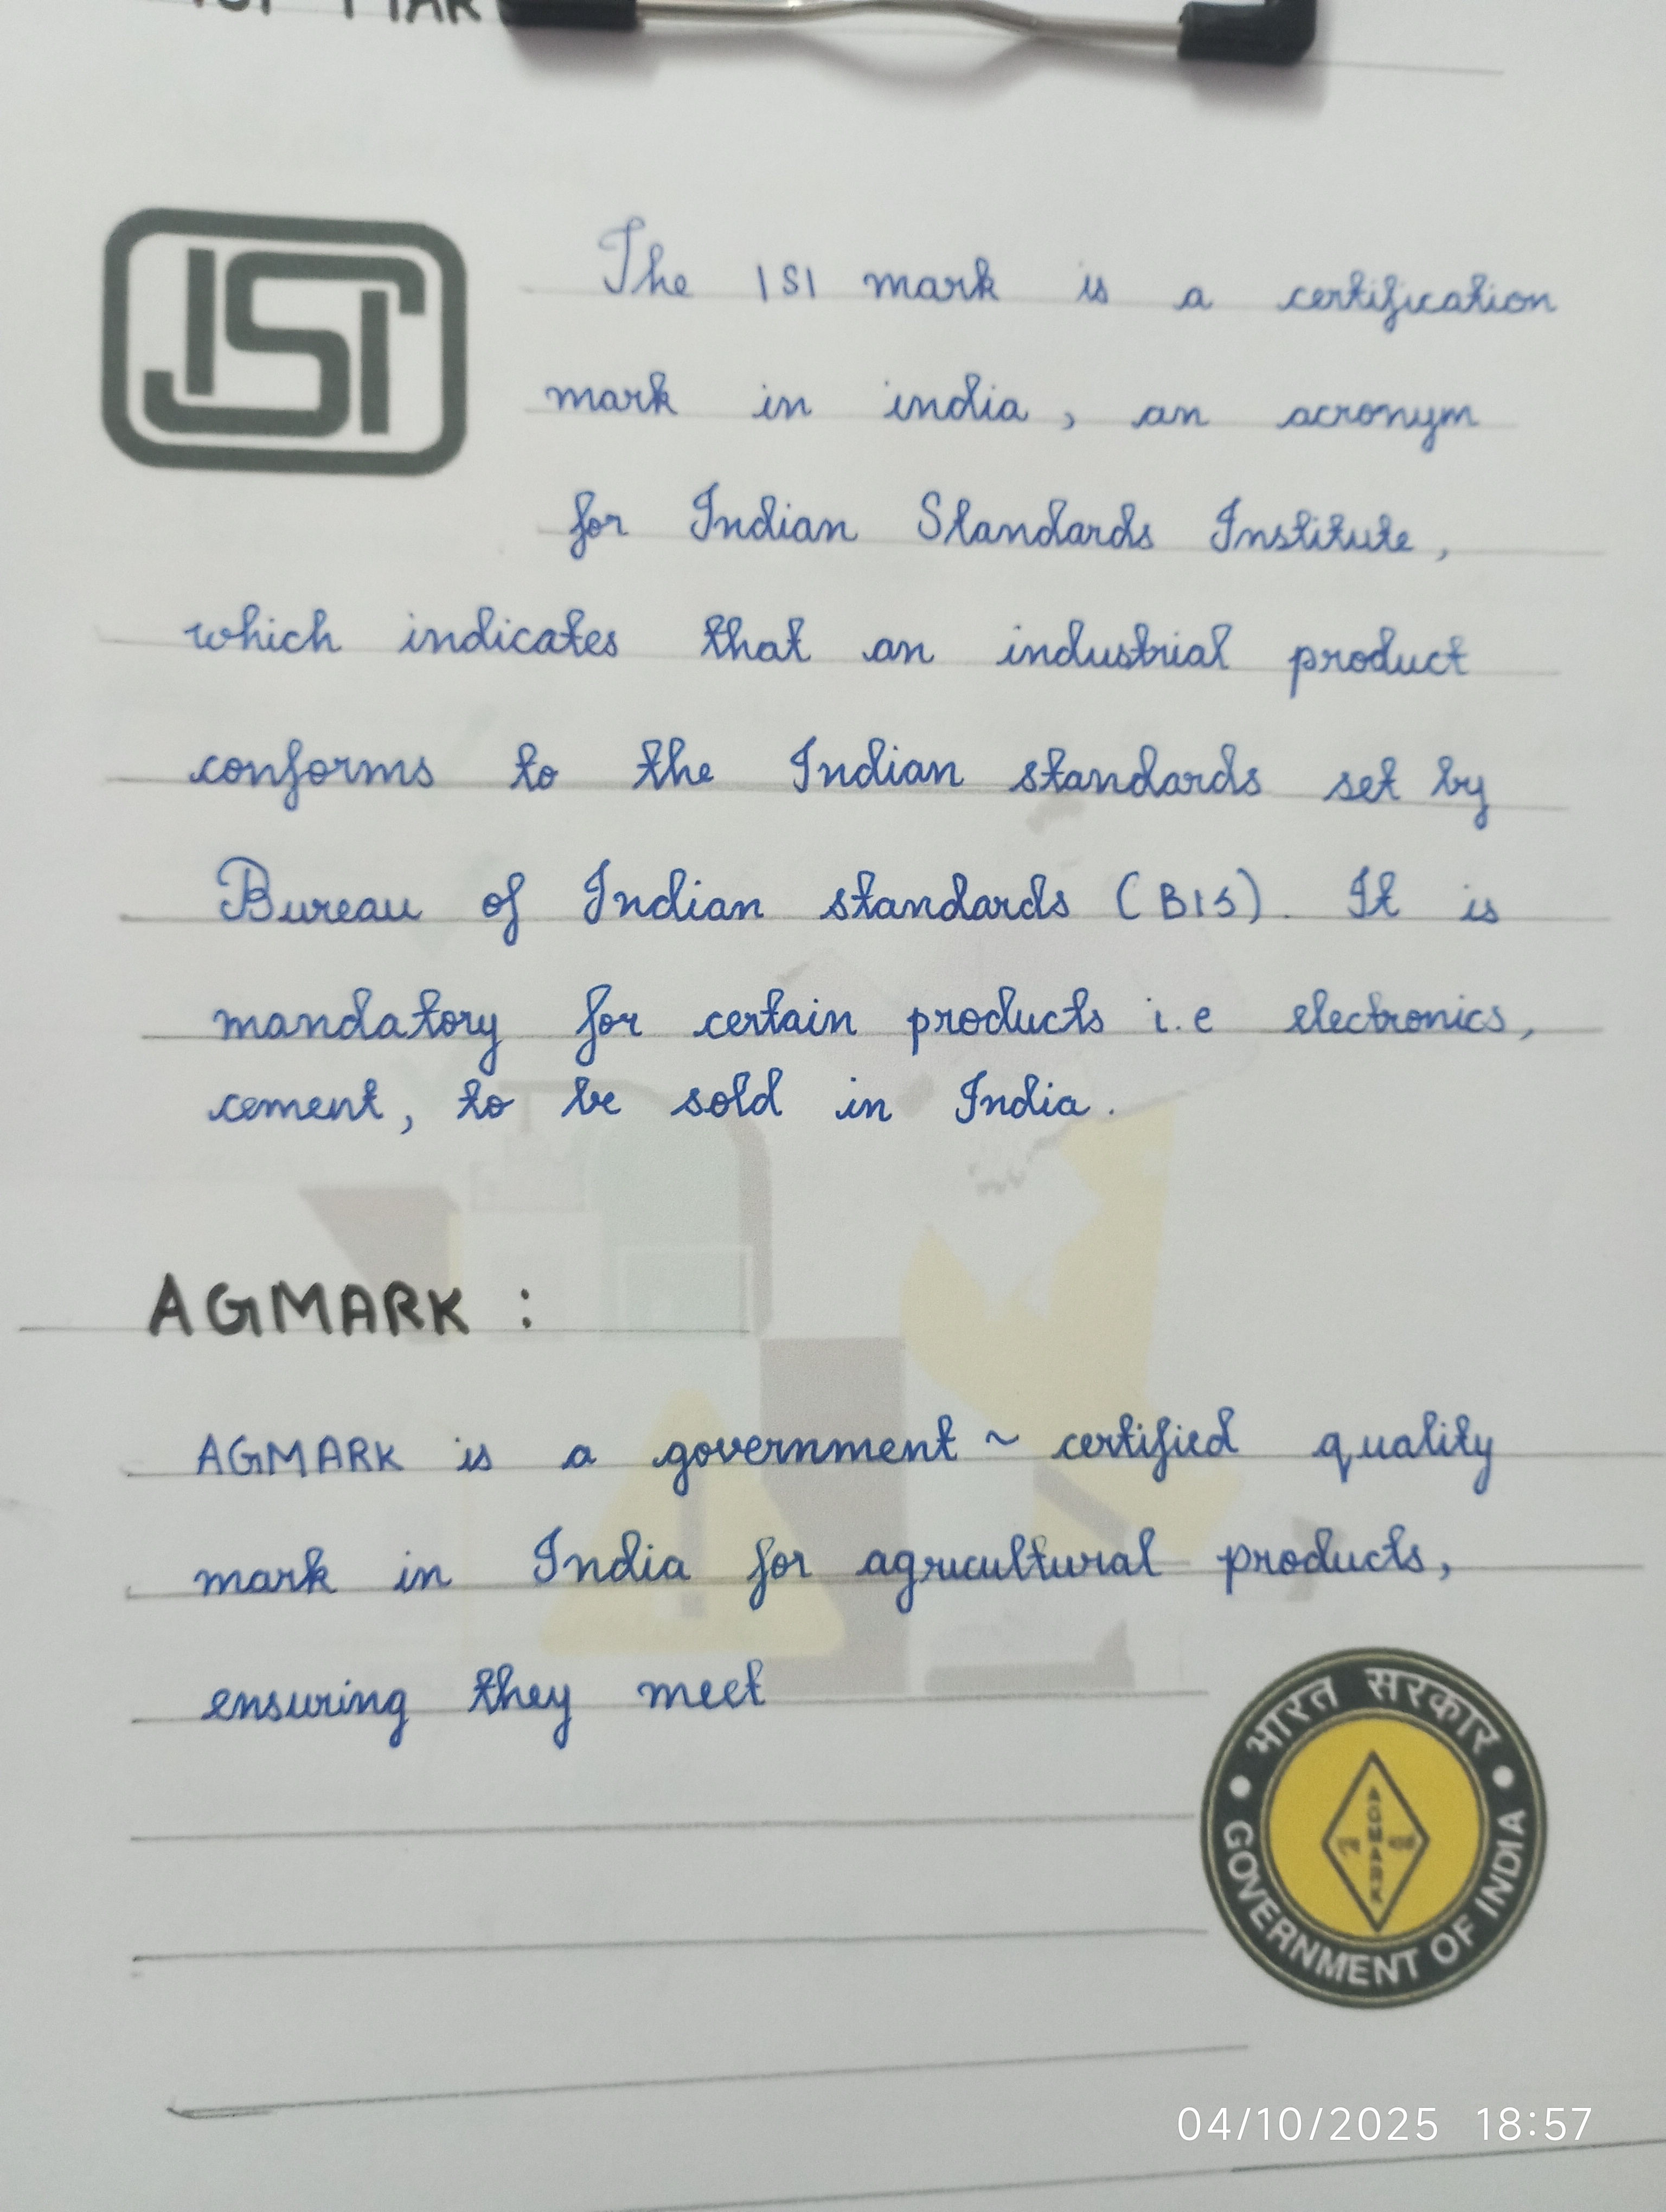 ISI MAR
ISI
The ISI mark is a certification
mark in india, an acronym
for Indian Standards Institute,
which indicates that an industrial product
conforms to the Indian standards set by
Bureau of Indian standards (BIS). It is
mandatory for certain products i.e electronics,
cement, to be sold in India.
AGMARK :
AGMARK is a government ~ certified quality
mark in India for agricultural products,
ensuring they meet
भारत सरकार
AGMARK
GOVERNMENT OF INDIA
04/10/2025 18:57